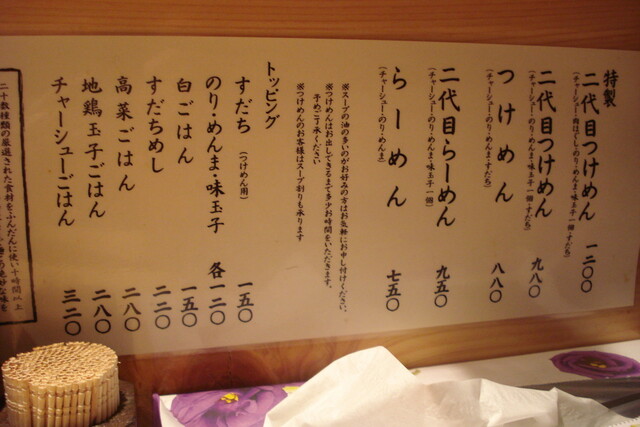 特製
二代目つけめん 一二〇〇
二代目つけめん 九八〇
(チャーシュー・のり・めんま・味玉子一個・すだち)
つけめん 八八〇
(チャーシュー・のり・めんま・すだち)
二代目らーめん 九五〇
(チャーシュー・のり・めんま・味玉子一個)
らーめん 七五〇
(チャーシュー・のり・めんま)
※スープの油の多いのがお好みの方はお気軽にお申し付けください。
※つけめんはお出しできるまで多少お時間をいただきます。
予めご了承ください
※つけめんのお客様はスープ割りも承ります
トッピング
すだち (つけめん用) 一五〇
のり・めんま・味玉子 各一二〇
白ごはん 一五〇
すだちめし 二二〇
高菜ごはん 二八〇
地鶏玉子ごはん 二八〇
チャーシューごはん 三二〇
二十数種類の厳選された食材をふんだんに使い十時間以上